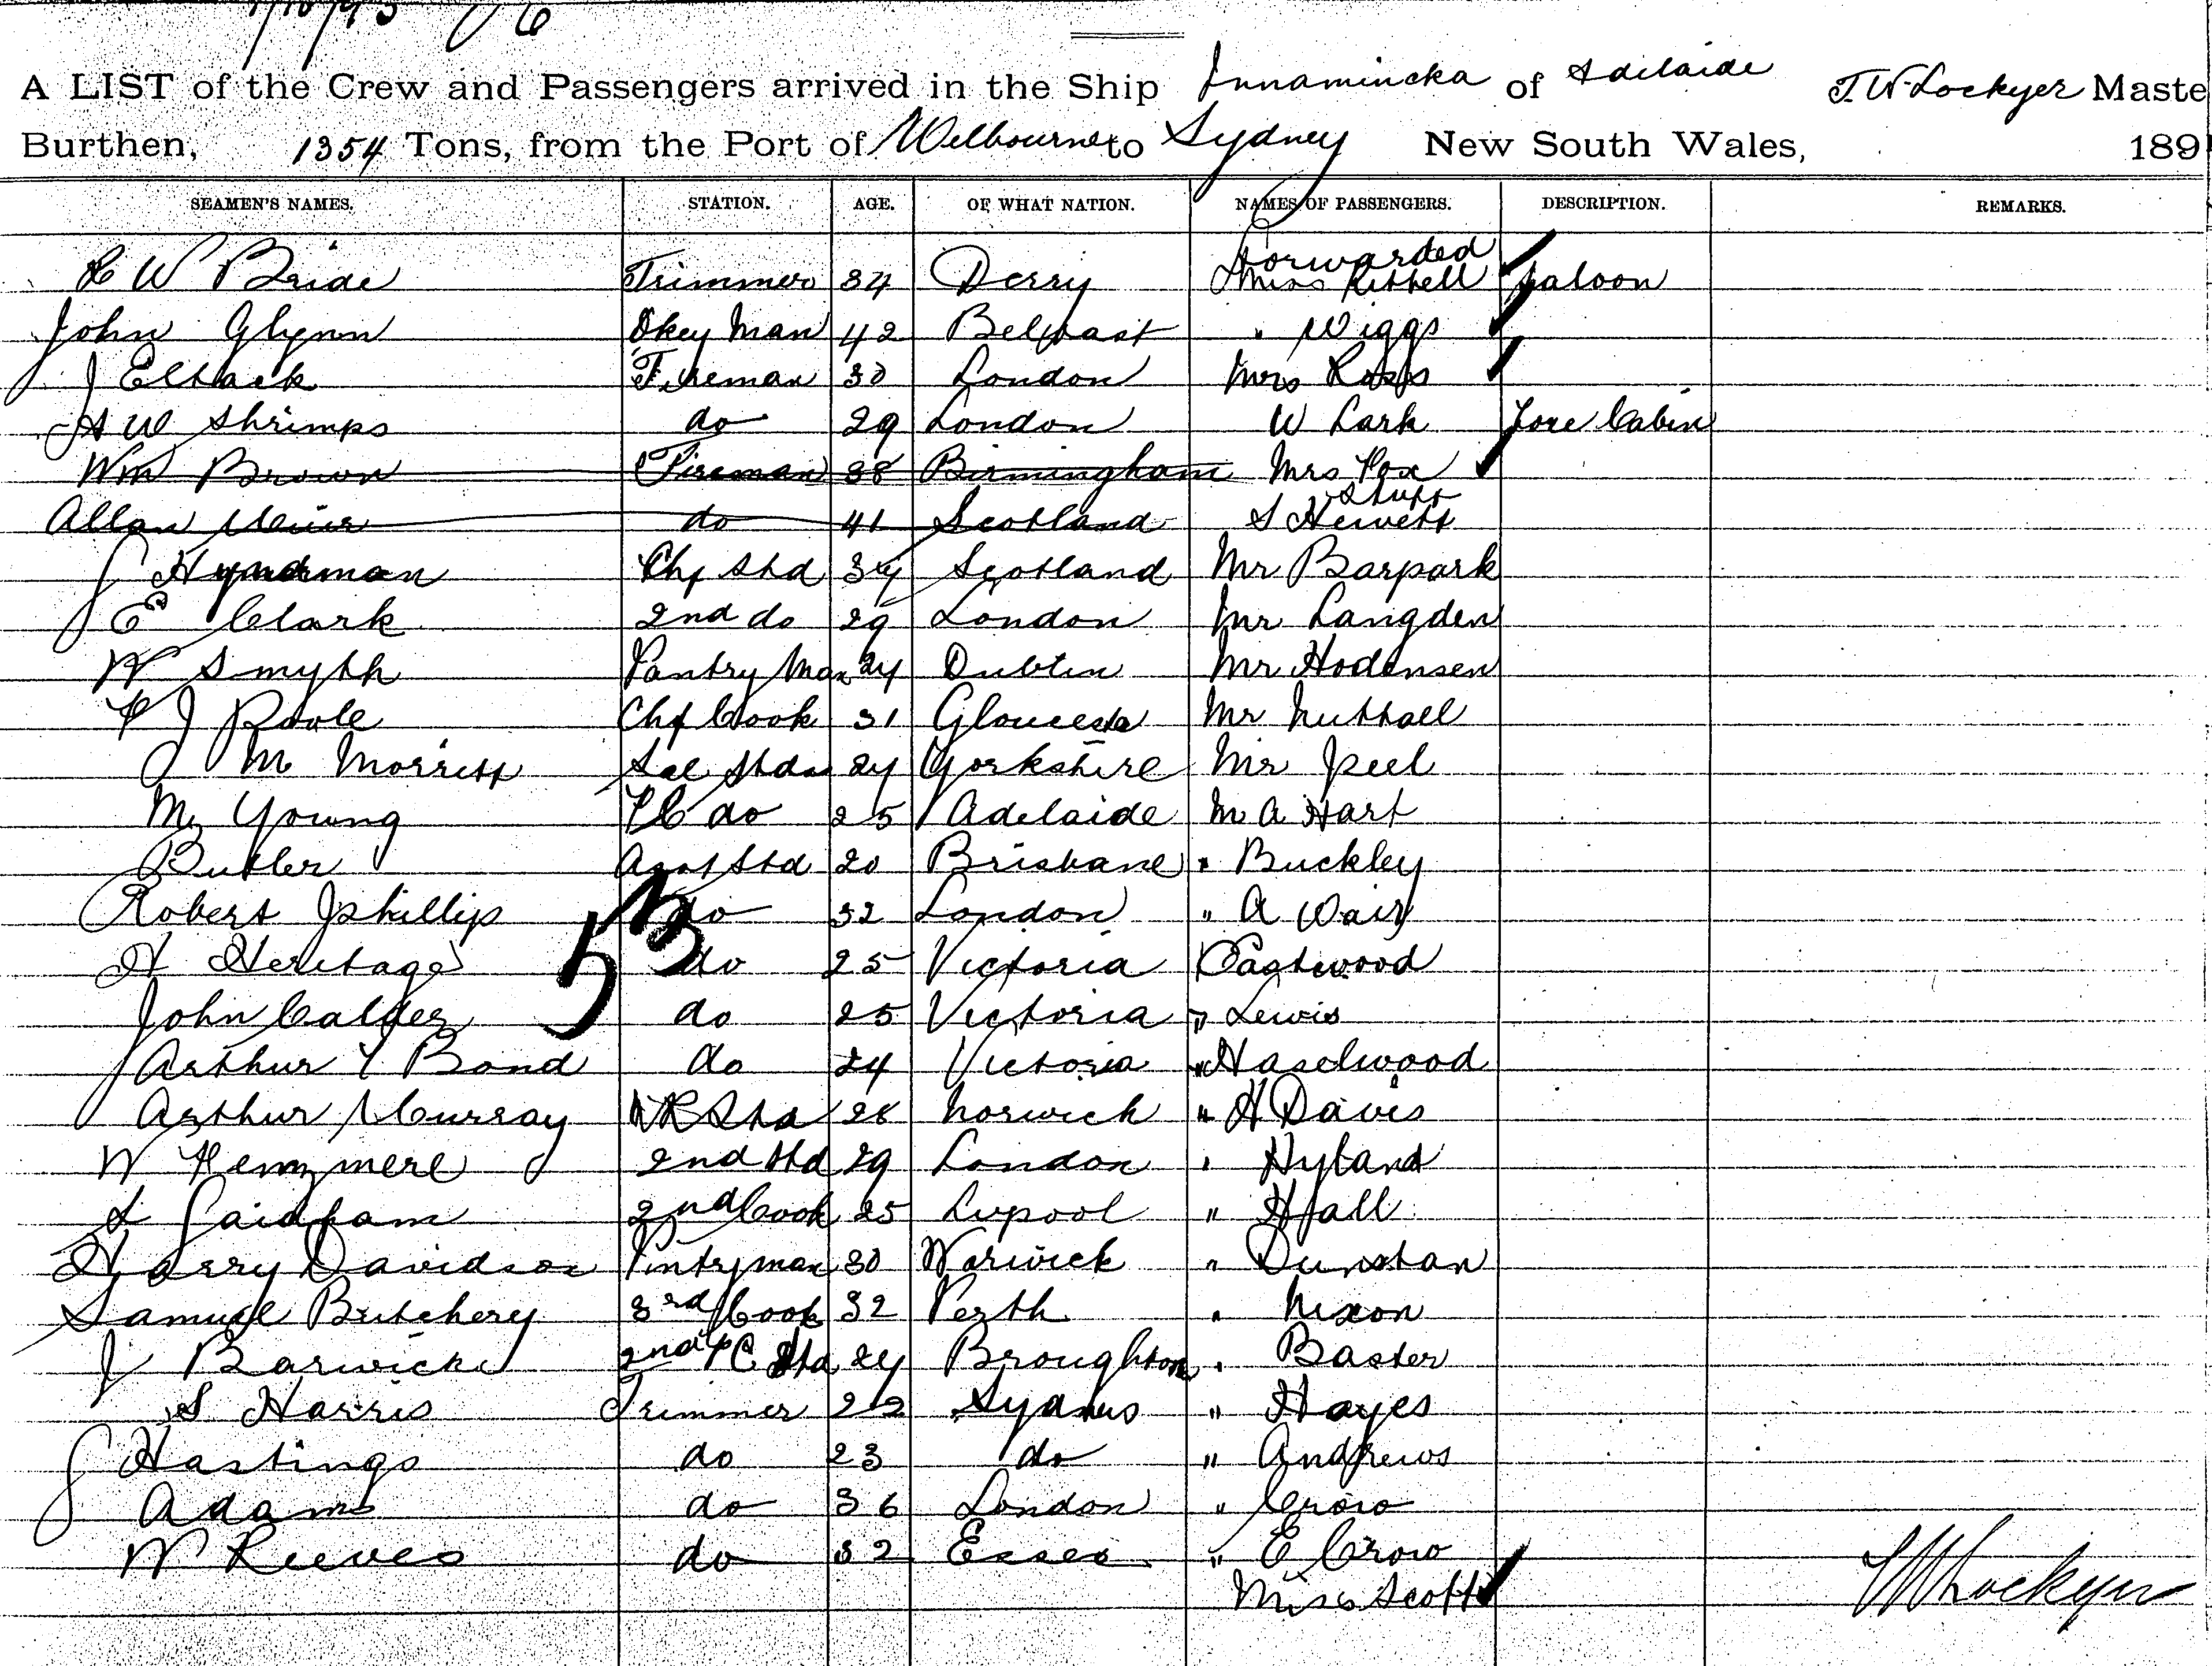 A LIST of the Crew and Passengers arrived in the Ship Innamincka of Adelaide T.W. Lockyer Maste
Burthen, 1354 Tons, from the Port of Melbourne to Sydney New South Wales, 189
SEAMEN'S NAMES. STATION. AGE. OF WHAT NATION. NAMES OF PASSENGERS. DESCRIPTION. REMARKS.
Forwarded
W Bride Trimmer 34 Derry Miss Kittell Saloon
John Glynn Dkey Man 42 Belfast " Wiggs
J Fireman 30 London Mrs Ross
W Shrimps do 29 London W Lark Fore Cabin
Wm Brown Fireman 38 Birmingham Mrs Fox
Allan Muir do 41 Scotland S Hewett
J Hyndman Chf Std 34 Scotland Mr Barpark
E Clark 2nd do 29 London Mr Langden
W Smyth Pantry Man 24 Dublin Mr Hodensen
F J Poole Chf Cook 31 Glouceste Mr Nuthall
M Morriss Sal Stdss 24 Yorkshire Mr Peel
M Young FC do 25 Adelaide M A Hart
Butler Asst Std 20 Brisbane " Buckley
Robert J Phillips do 32 London " A Wair
H Heritage do 25 Victoria Eastwood
53
John Calder do 25 Victoria " Lewis
Arthur Y Bond do 24 Victoria " Haselwood
Arthur Murray Std 28 Norwich " H Davis
W Hemmere 2nd Std 29 London " Hyland
2nd Cook 25 Lvpool " Hall
Harry Davidson Pintryman 30 Warwick " Dunstan
Samuel Butchery 3rd Cook 32 Perth " Nixon
J Barwick 2nd FC Std 24 Broughton " Baster
S Harris Trimmer 22 Sydney " Hayes
J Hastings do 23 do " Andrews
Adams do 36 London " Crow
W Reeves do 32 Essex " E Crow
Miss Scott
TW Lockyer